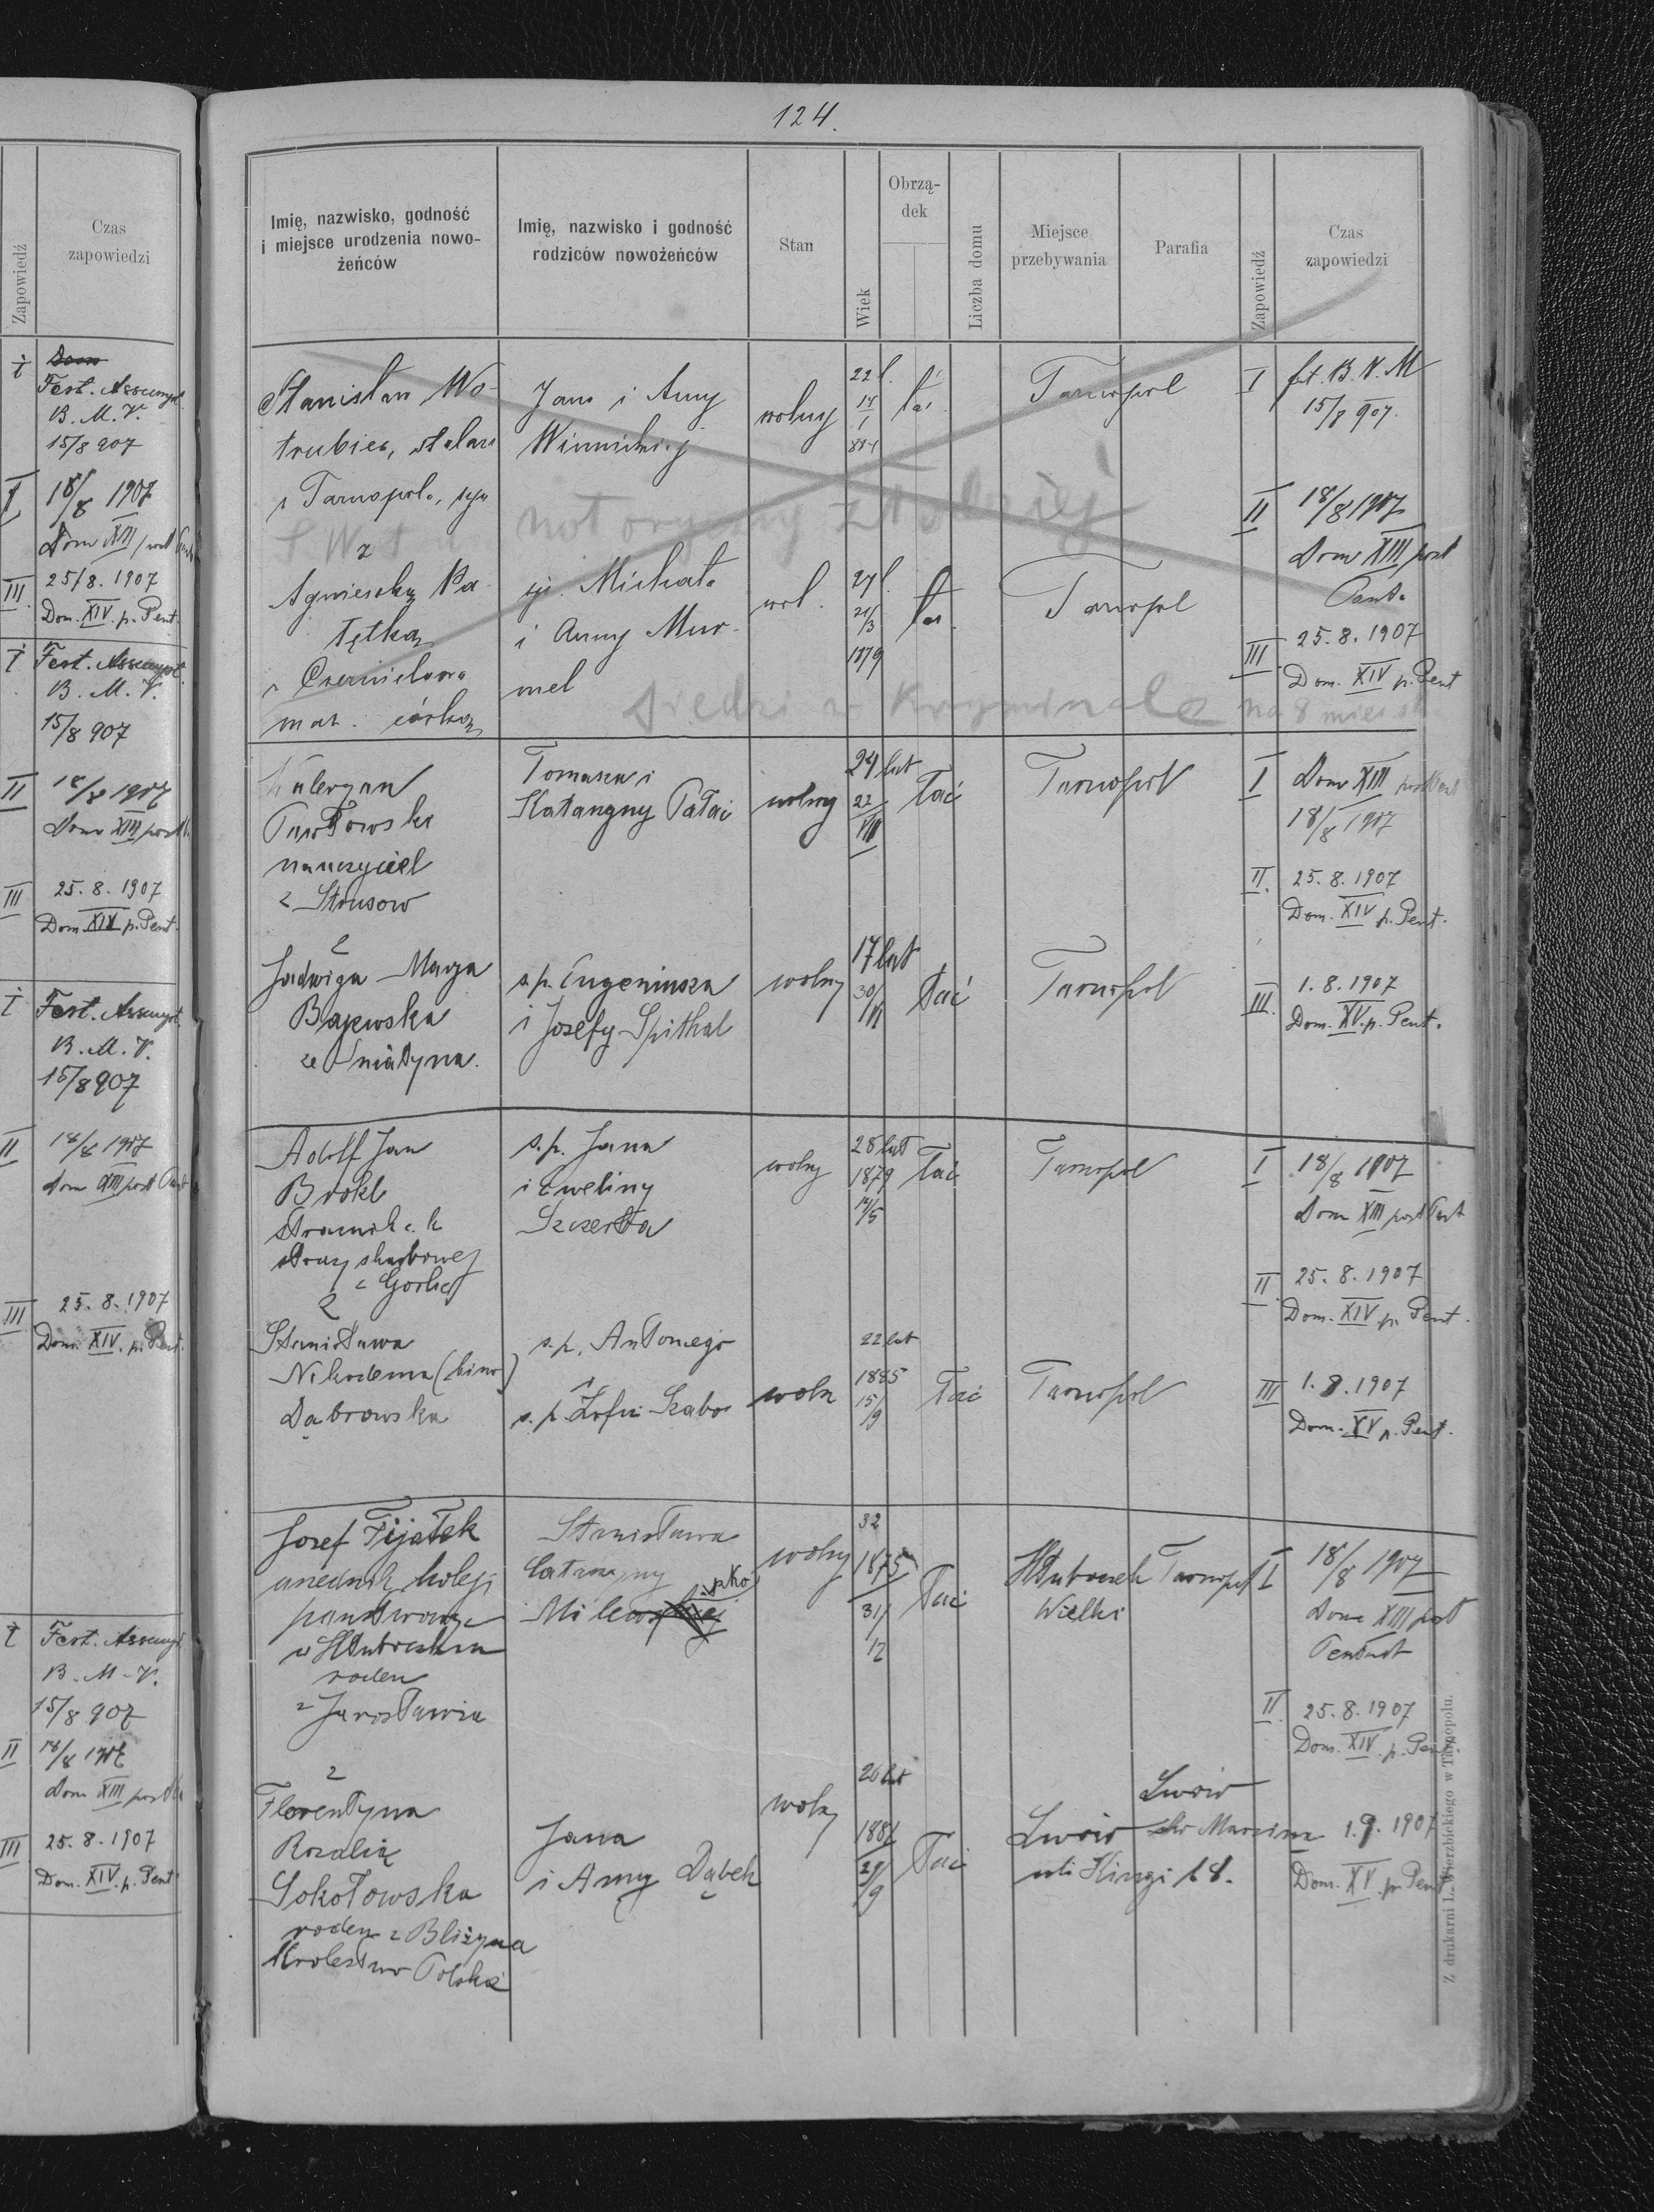 Zapowiedź
Czas
zapowiedzi
I
Dom
Fest. Assumpt.
B. M. V.
15/8 907
II
18/8 1907
Dom XIII post
III
25/8. 1907
Dom. XIV. p. Pent.
I
Fest. Assumpt.
B. M. V.
15/8 907
II
18/8 1907
Dom XIII post
III
25. 8. 1907
Dom. XIV p. Pent.
I
Fest. Assumpt.
B. M. V.
15/8 907
II
18/8 1907
Dom XIII post Pent
III
25. 8. 1907
Dom. XIV. p. Pent.
I
Fest. Assumpt
B. M. V.
15/8 907
II
18/8 1907
Dom XIII post
III
25. 8. 1907
Dom. XIV. p. Pent
124.
Imię, nazwisko, godność
i miejsce urodzenia nowo-
żeńców
Imię, nazwisko i godność
rodziców nowożeńców
Stan
Wiek
Obrzą-
dek
Liczba domu
Miejsce
przebywania
Parafia
Zapowiedź
Czas
zapowiedzi
Stanisław Wo-
trubiec, stolarz
z Tarnopola, syn
Jana i Anny
Winnickiej
wolny
22 l.
14
1
884
łac
Tarnopol
I
fst. B. V. M
15/8 907.
II
18/8 1907
Dom XIII post
Pent.
notoryczny złodziej
z
Agnieszką Pa-
łętką
z Czernielowa
maz. córką
Michała
i Anny Mur-
mel
wol.
27 l.
21/3
1879
łac.
Tarnopol
III
25. 8. 1907
Dom. XIV p. Pent
siedzi w kryminale na 8 miesi
Waleryan
Pawłowski
nauczyciel
z Strusow
Tomasza i
Katarzyny Pałac
wolny
24 lat
22
VIII
łać
Tarnopol
I
Dom XIII post Pent
18/8 1907
II.
25. 8. 1907
Dom. XIV p. Pent.
z
Jadwiga Marya
Bajewska
ze Sniatyna.
s.p. Eugeniusza
i Josefy Spithal
wolny
17 lat
30/VI
łać
Tarnopol
III.
1. 8. 1907
Dom. XV. p. Pent.
Adolf Jan
Brokl
straznik c. k
straży skarbowej
z Gorlic
s. p. Jana
i Eweliny
Szczerba
wolny
28 lat
1879
14/5
łać
Tarnopol
I
18/8 1907
Dom XIII post Pent
II
25. 8. 1907
Dom. XIV p. Pent.
z
Stanisława
Nikodema (bino)
Dąbrowska
s. p. Antoniego
i
s. p. Zofii Szabo
woln
22 lat
1885
15/9
łać
Tarnopol
III
1. 8. 1907
Dom. XV p. Pent.
Josef Fijałek
urzednik kolej
państwowej
w Hłuboczku
roden
z Jarosławia
Stanisława
Catarzyny
Milewskiej
pko
wolny
32
1875
31/
12
łać
Hłuboczek
Wielki
Tarnopol
I
18/8 1907
Dom XIII post
Pentect
II
25. 8. 1907
Dom. XIV. p. Pent.
z
Florentyna
Rozalią
Sokołowska
roden z Bliżyna
Krolestwo Polskie
Jana
i Anny Dąbek
wolny
26 lat
1881
29/9
łać
Lwow
uli Kingi 18.
Lwow
sw Marcina
1. 9. 1907
Dom. XV p. Pent
Z drukarni L. Wierzbickiego w Tarnopolu.